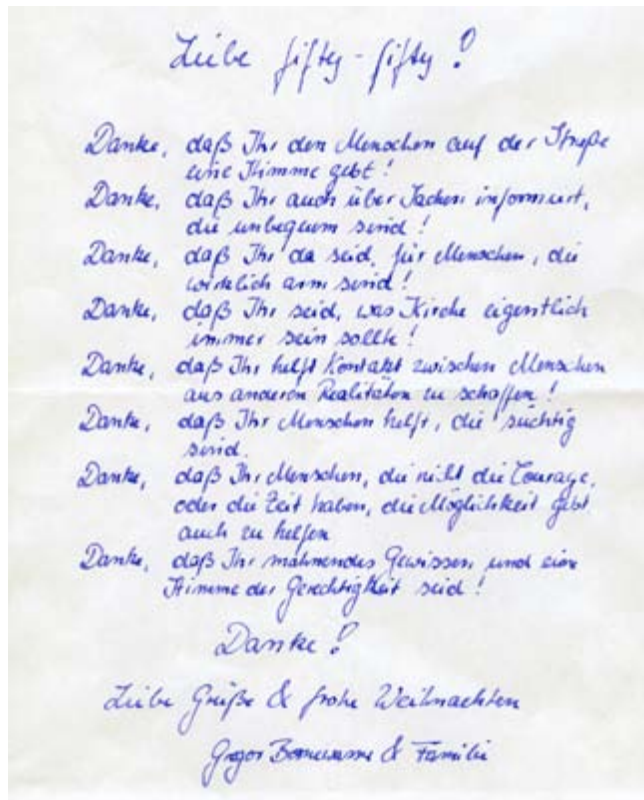 Liebe fifty-fifty!
Danke, daß Ihr den Menschen auf der Straße
eine Stimme gebt!
Danke, daß Ihr auch über Sachen informiert,
die unbequem sind!
Danke, daß Ihr da seid, für Menschen, die
wirklich arm sind!
Danke, daß Ihr seid, was Kirche eigentlich
immer sein sollte!
Danke, daß Ihr helft Kontakt zwischen Menschen
aus anderen Realitäten zu schaffen!
Danke, daß Ihr Menschen helft, die süchtig
sind.
Danke, daß Ihr Menschen, die nicht die Courage,
oder die Zeit haben, die Möglichkeit gebt
auch zu helfen
Danke, daß Ihr mahnendes Gewissen und eine
Stimme der Gerechtigkeit seid!
Danke!
Liebe Grüße & frohe Weihnachten
Gregor & Familie